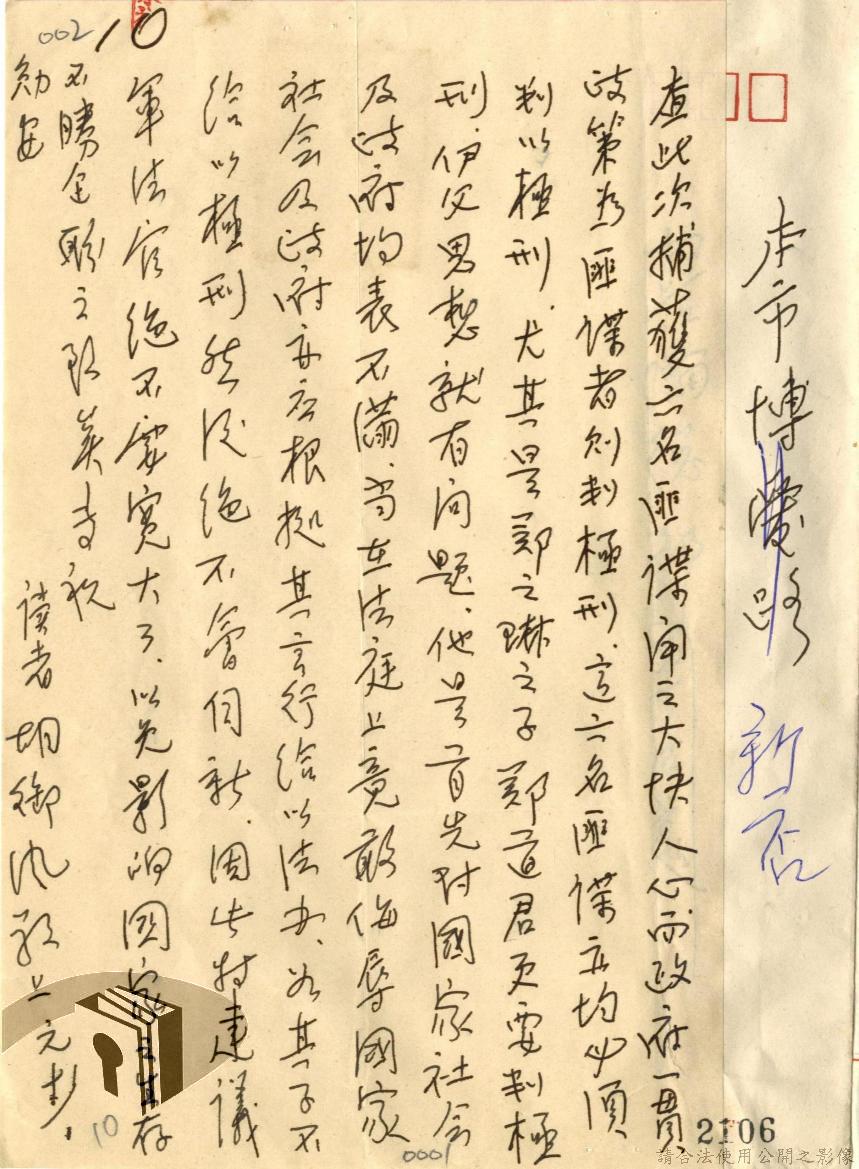 002
10
本市博愛路 新店
查此次捕獲六名匪諜聞之大快人心而政府一貫
政策為匪諜者則判極刑、這六名匪諜亦均必須
判以極刑、尤其是鄭之子鄭道君更要判極
刑、伊父思想就有问題、他是首先对國家社会
及政府均表不满、当在法庭上竟敢侮辱國家
社会及政府亦应根据其言行给以法办、如其子不
给以極刑然後絕不會自新、因此特建議
軍法官絕不要寬大了、以免影响國家之生存
不勝企盼之至矣专祝
勛安
读者胡御风敬上元
10
0001
2106
請合法使用公開之影像